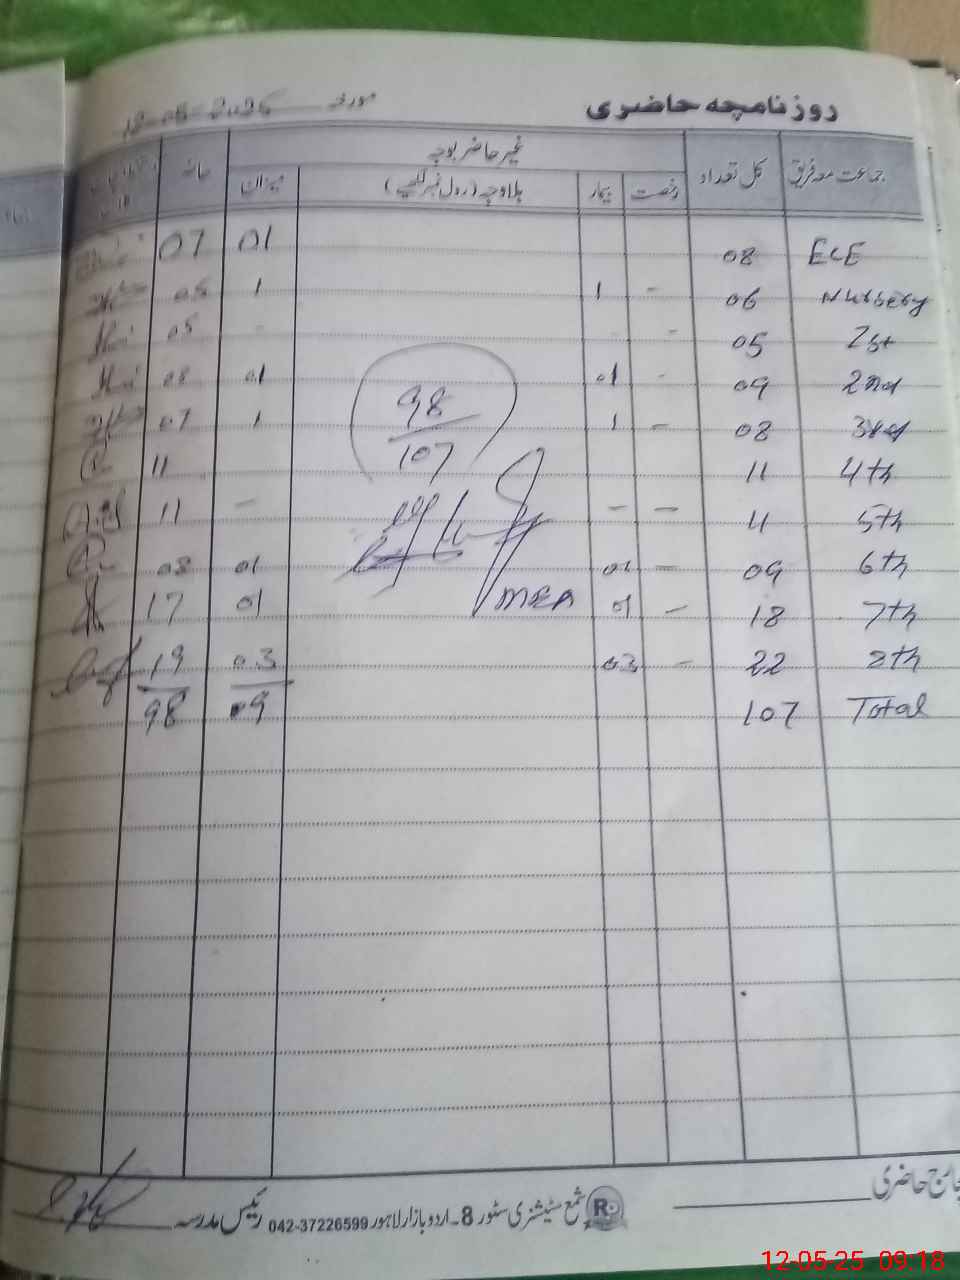 روزنامچہ حاضری مورخہ 12-05-2025
جماعت معہ فریق کل تعداد غیر حاضر بوجہ حاضر
رخصت بیمار بلا وجہ (رول نمبر لکھیے) میزان
ECE 08 01 07
Nursery 06 - 1 1 05
1st 05 - - - 05
2nd 09 - 01 01 08
3rd 08 - 1 1 07
4th 11 11
5th 11 - - - 11
6th 09 - 01 01 08
7th 18 - 01 01 17
8th 22 - 03 03 19
Total 107 09 98
98
107
MEA
چارج حاضری
شمع سٹیشنری سٹور 8۔اردو بازار لاہور 042-37226599 رئیس مدرسہ
12-05-25 09:18